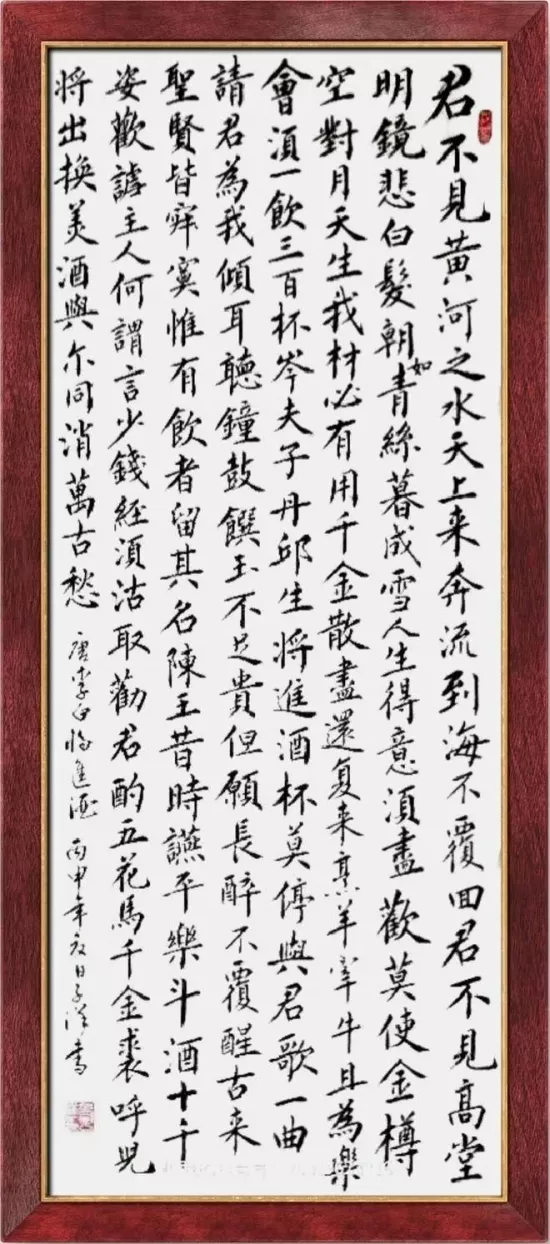 君不見黃河之水天上来奔流到海不覆回君不見高堂
明鏡悲白髮朝如青絲暮成雪人生得意須盡歡莫使金樽
空對月天生我材必有用千金散盡還复来烹羊宰牛且為樂
會須一飲三百杯岑夫子丹邱生将進酒杯莫停與君歌一曲
請君為我傾耳聽鐘鼓饌玉不足貴但願長醉不覆醒古来
聖賢皆寂寞惟有飲者留其名陳王昔時讌平樂斗酒十千
姿歡謔主人何謂言少錢経須沽取勸君酌五花馬千金裘呼児
将出換美酒與尔同消萬古愁
唐李白将進酒 丙申年夏日子洋書